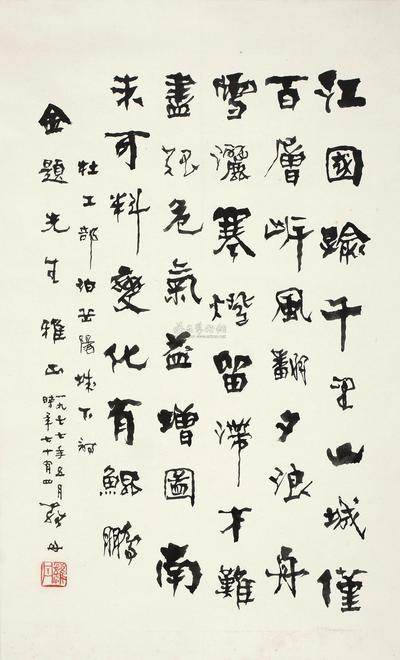 江國踰千里山城僅
百層岸風翻夕浪舟
雪灑寒燈留滯才難
盡艱危氣益增圖南
未可料變化有鯤鵬
杜工部泊岳陽城下詩
金題先生雅正
一九七七年五月
時年七十有四
羅丹